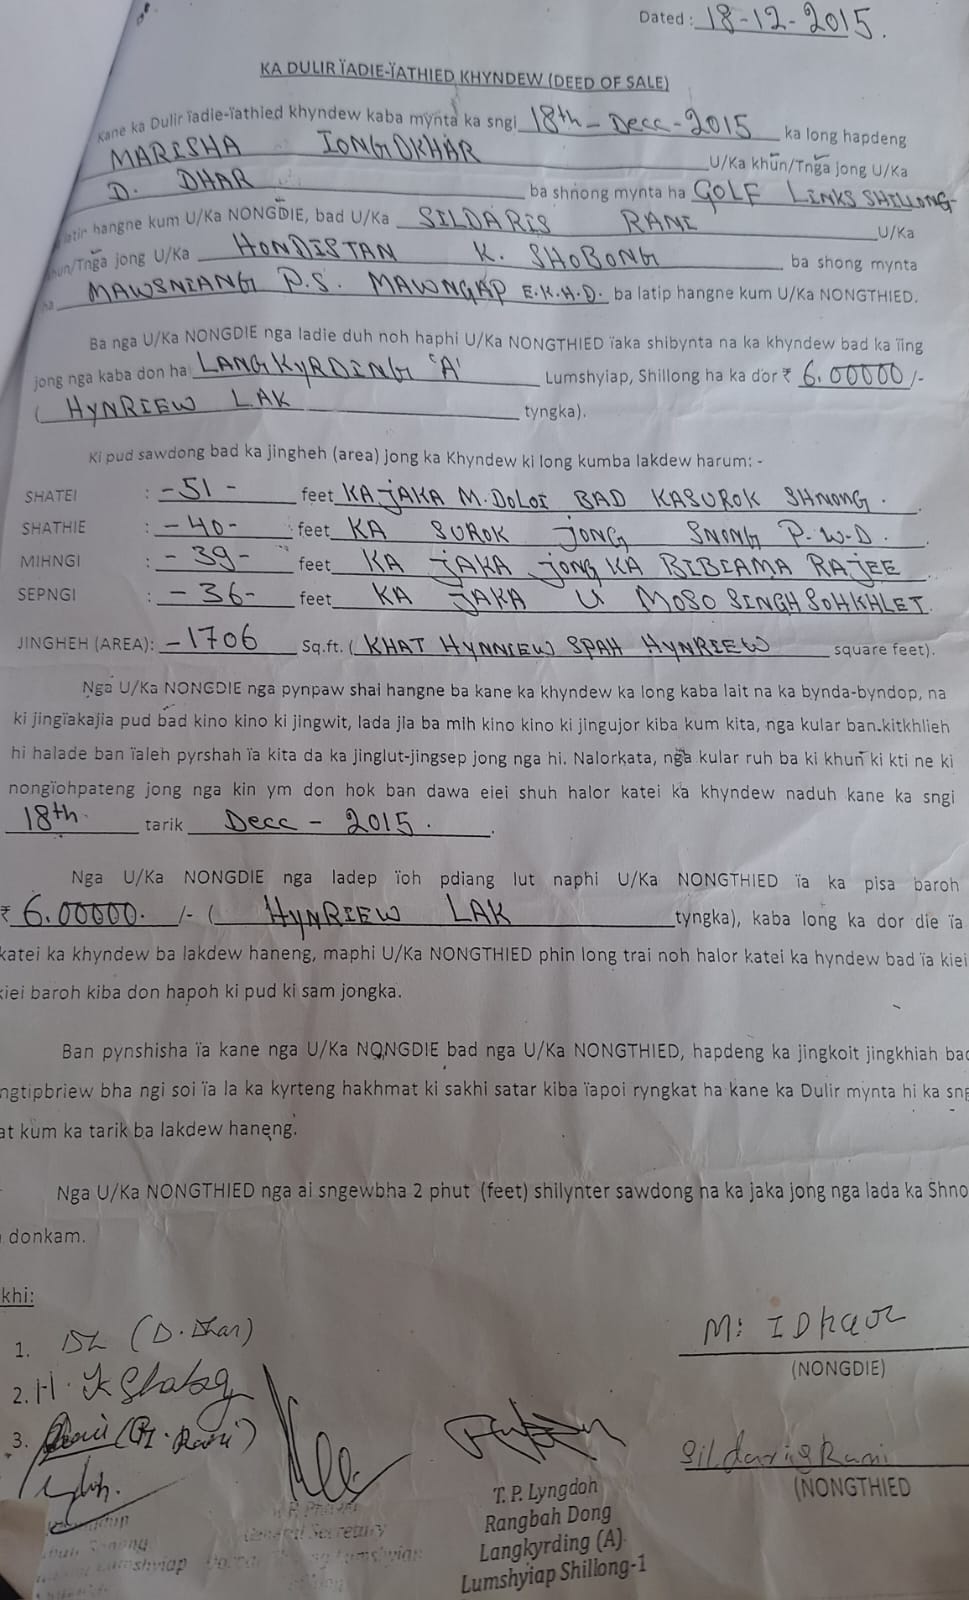 Dated : 18-12-2015.
KA DULIR ÏADIE-ÏATHIED KHYNDEW (DEED OF SALE)
Kane ka Dulir ïadie-ïathied khyndew kaba mynta ka sngi 18th-Decc-2015 ka long hapdeng
MARISHA IONGDKHAR U/Ka khun/Tnga jong U/Ka
D. DHAR ba shnong mynta ha GOLF LINKS SHILLONG-
latip hangne kum U/Ka NONGDIE, bad U/Ka SILDARIS RANI U/Ka
khun/Tnga jong U/Ka HONDISTAN K. SHOBONG ba shong mynta
ha MAWSNIANG P.S. MAWNGAP E.K.H.D. ba latip hangne kum U/Ka NONGTHIED.
Ba nga U/Ka NONGDIE nga ladie duh noh haphi U/Ka NONGTHIED ïaka shibynta na ka khyndew bad ka ïing
jong nga kaba don ha LANGKYRDING 'A' Lumshyiap, Shillong ha ka dor ₹ 6.00000/-
( HYNRIEW LAK tyngka).
Ki pud sawdong bad ka jingheh (area) jong ka Khyndew ki long kumba lakdew harum: -
SHATEI : -51- feet KA JAKA M. DOLOI BAD KASUROK SHNONG.
SHATHIE : -40- feet KA SUROK JONG SNONG P.W.D.
MIHNGI : -39- feet KA JAKA JONG KA BIBIAMA RAJEE
SEPNGI : -36- feet KA JAKA U MOSO SINGH SOHKHLET.
JINGHEH (AREA): -1706 Sq.ft. ( KHAT HYNNIEW SPAH HYNRIEW square feet).
Nga U/Ka NONGDIE nga pynpaw shai hangne ba kane ka khyndew ka long kaba lait na ka bynda-byndop, na
ki jingïakajia pud bad kino kino ki jingwit, lada jia ba mih kino kino ki jingujor kiba kum kita, nga kular ban kitkhlieh
hi halade ban ïaleh pyrshah ïa kita da ka jinglut-jingsep jong nga hi. Nalorkata, nga kular ruh ba ki khun ki kti ne ki
nongïohpateng jong nga kin ym don hok ban dawa eiei shuh halor katei ka khyndew naduh kane ka sngi
18th. tarik Decc - 2015.
Nga U/Ka NONGDIE nga ladep ïoh pdiang lut naphi U/Ka NONGTHIED ïa ka pisa baroh
₹ 6.00000. /- ( HYNRIEW LAK tyngka), kaba long ka dor die ïa
katei ka khyndew ba lakdew haneng, maphi U/Ka NONGTHIED phin long trai noh halor katei ka hyndew bad ïa kiei
kiei baroh kiba don hapoh ki pud ki sam jongka.
Ban pynshisha ïa kane nga U/Ka NONGDIE bad nga U/Ka NONGTHIED, hapdeng ka jingkoit jingkhiah bad
ngtipbriew bha ngi soi ïa la ka kyrteng hakhmat ki sakhi satar kiba ïapoi ryngkat ha kane ka Dulir mynta hi ka sng
at kum ka tarik ba lakdew haneng.
Nga U/Ka NONGTHIED nga ai sngewbha 2 phut (feet) shilynter sawdong na ka jaka jong nga lada ka Shno
donkam.
khi:
1. (D. Dhar)
M: IDkhar
(NONGDIE)
2. H. K Shabong
3. Rani (Rani)
Sildaris Rani
(NONGTHIED
T. P. Lyngdoh
Rangbah Dong
Langkyrding (A)
Lumshyiap Shillong-1
General Secretary
Lumshyiap